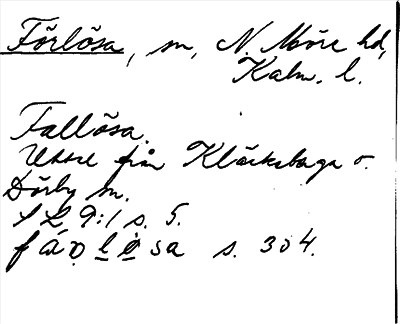 Förlösa, sn, N. Möre hd,
Kalm. l.
Fallösa.
Uttal från Kläckeberga o.
Dörby sn.
SL 9:1 s. 5.
fáo̩l̲ö̲sa s. 304.